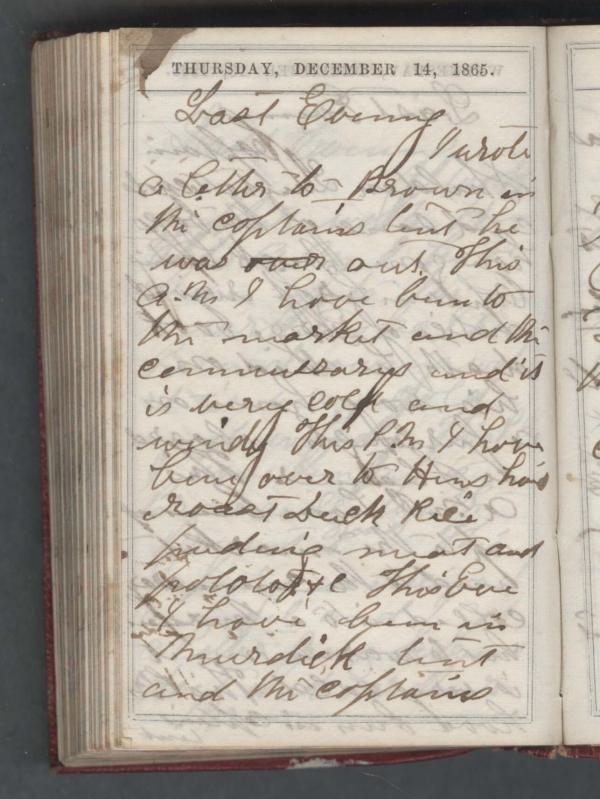 THURSDAY, DECEMBER 14, 1865.
Last Evening
I wrote
a letter to Brown in
the captains tent he
was over out This
A.M I have been to
the market and the
commissarys and it
is very cold and
windy This P.M I have
been over to Hens had
roast Duck Rice
puding meat and
potato &c This Eve
I have been in
Murdick tent
and the captains